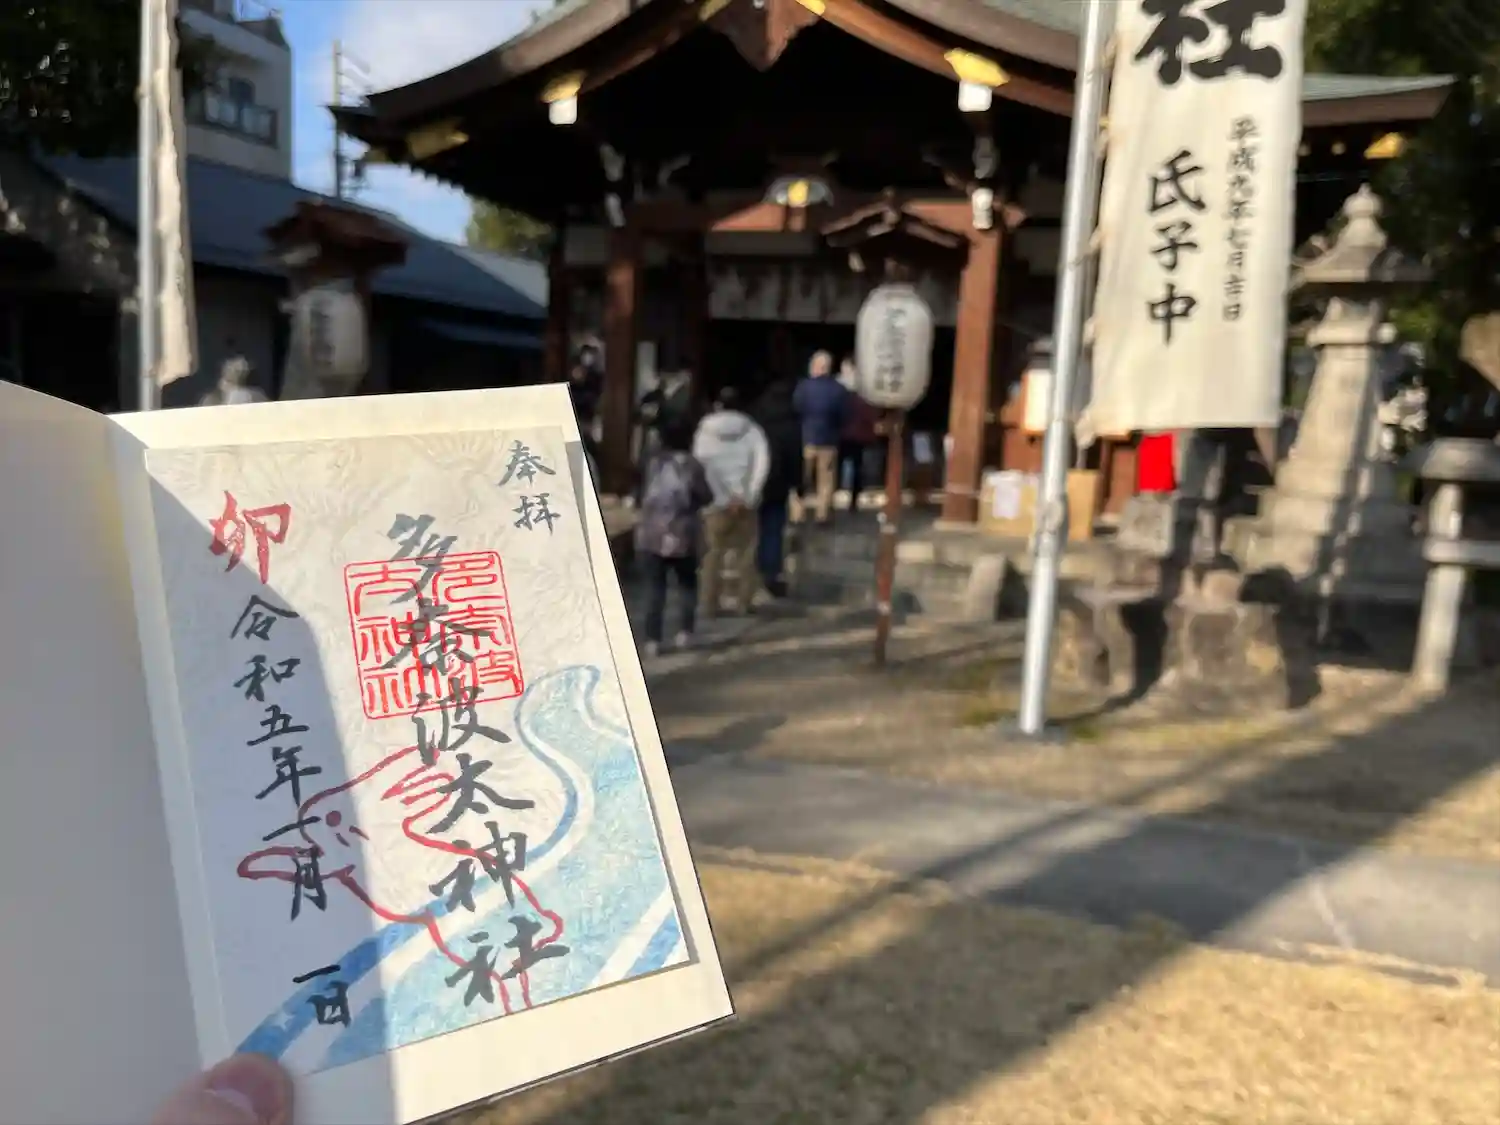 奉拝
多奈波太神社
多奈波
太神社
卯
令和五年一月一日
社
平成九年七月吉日
氏子中